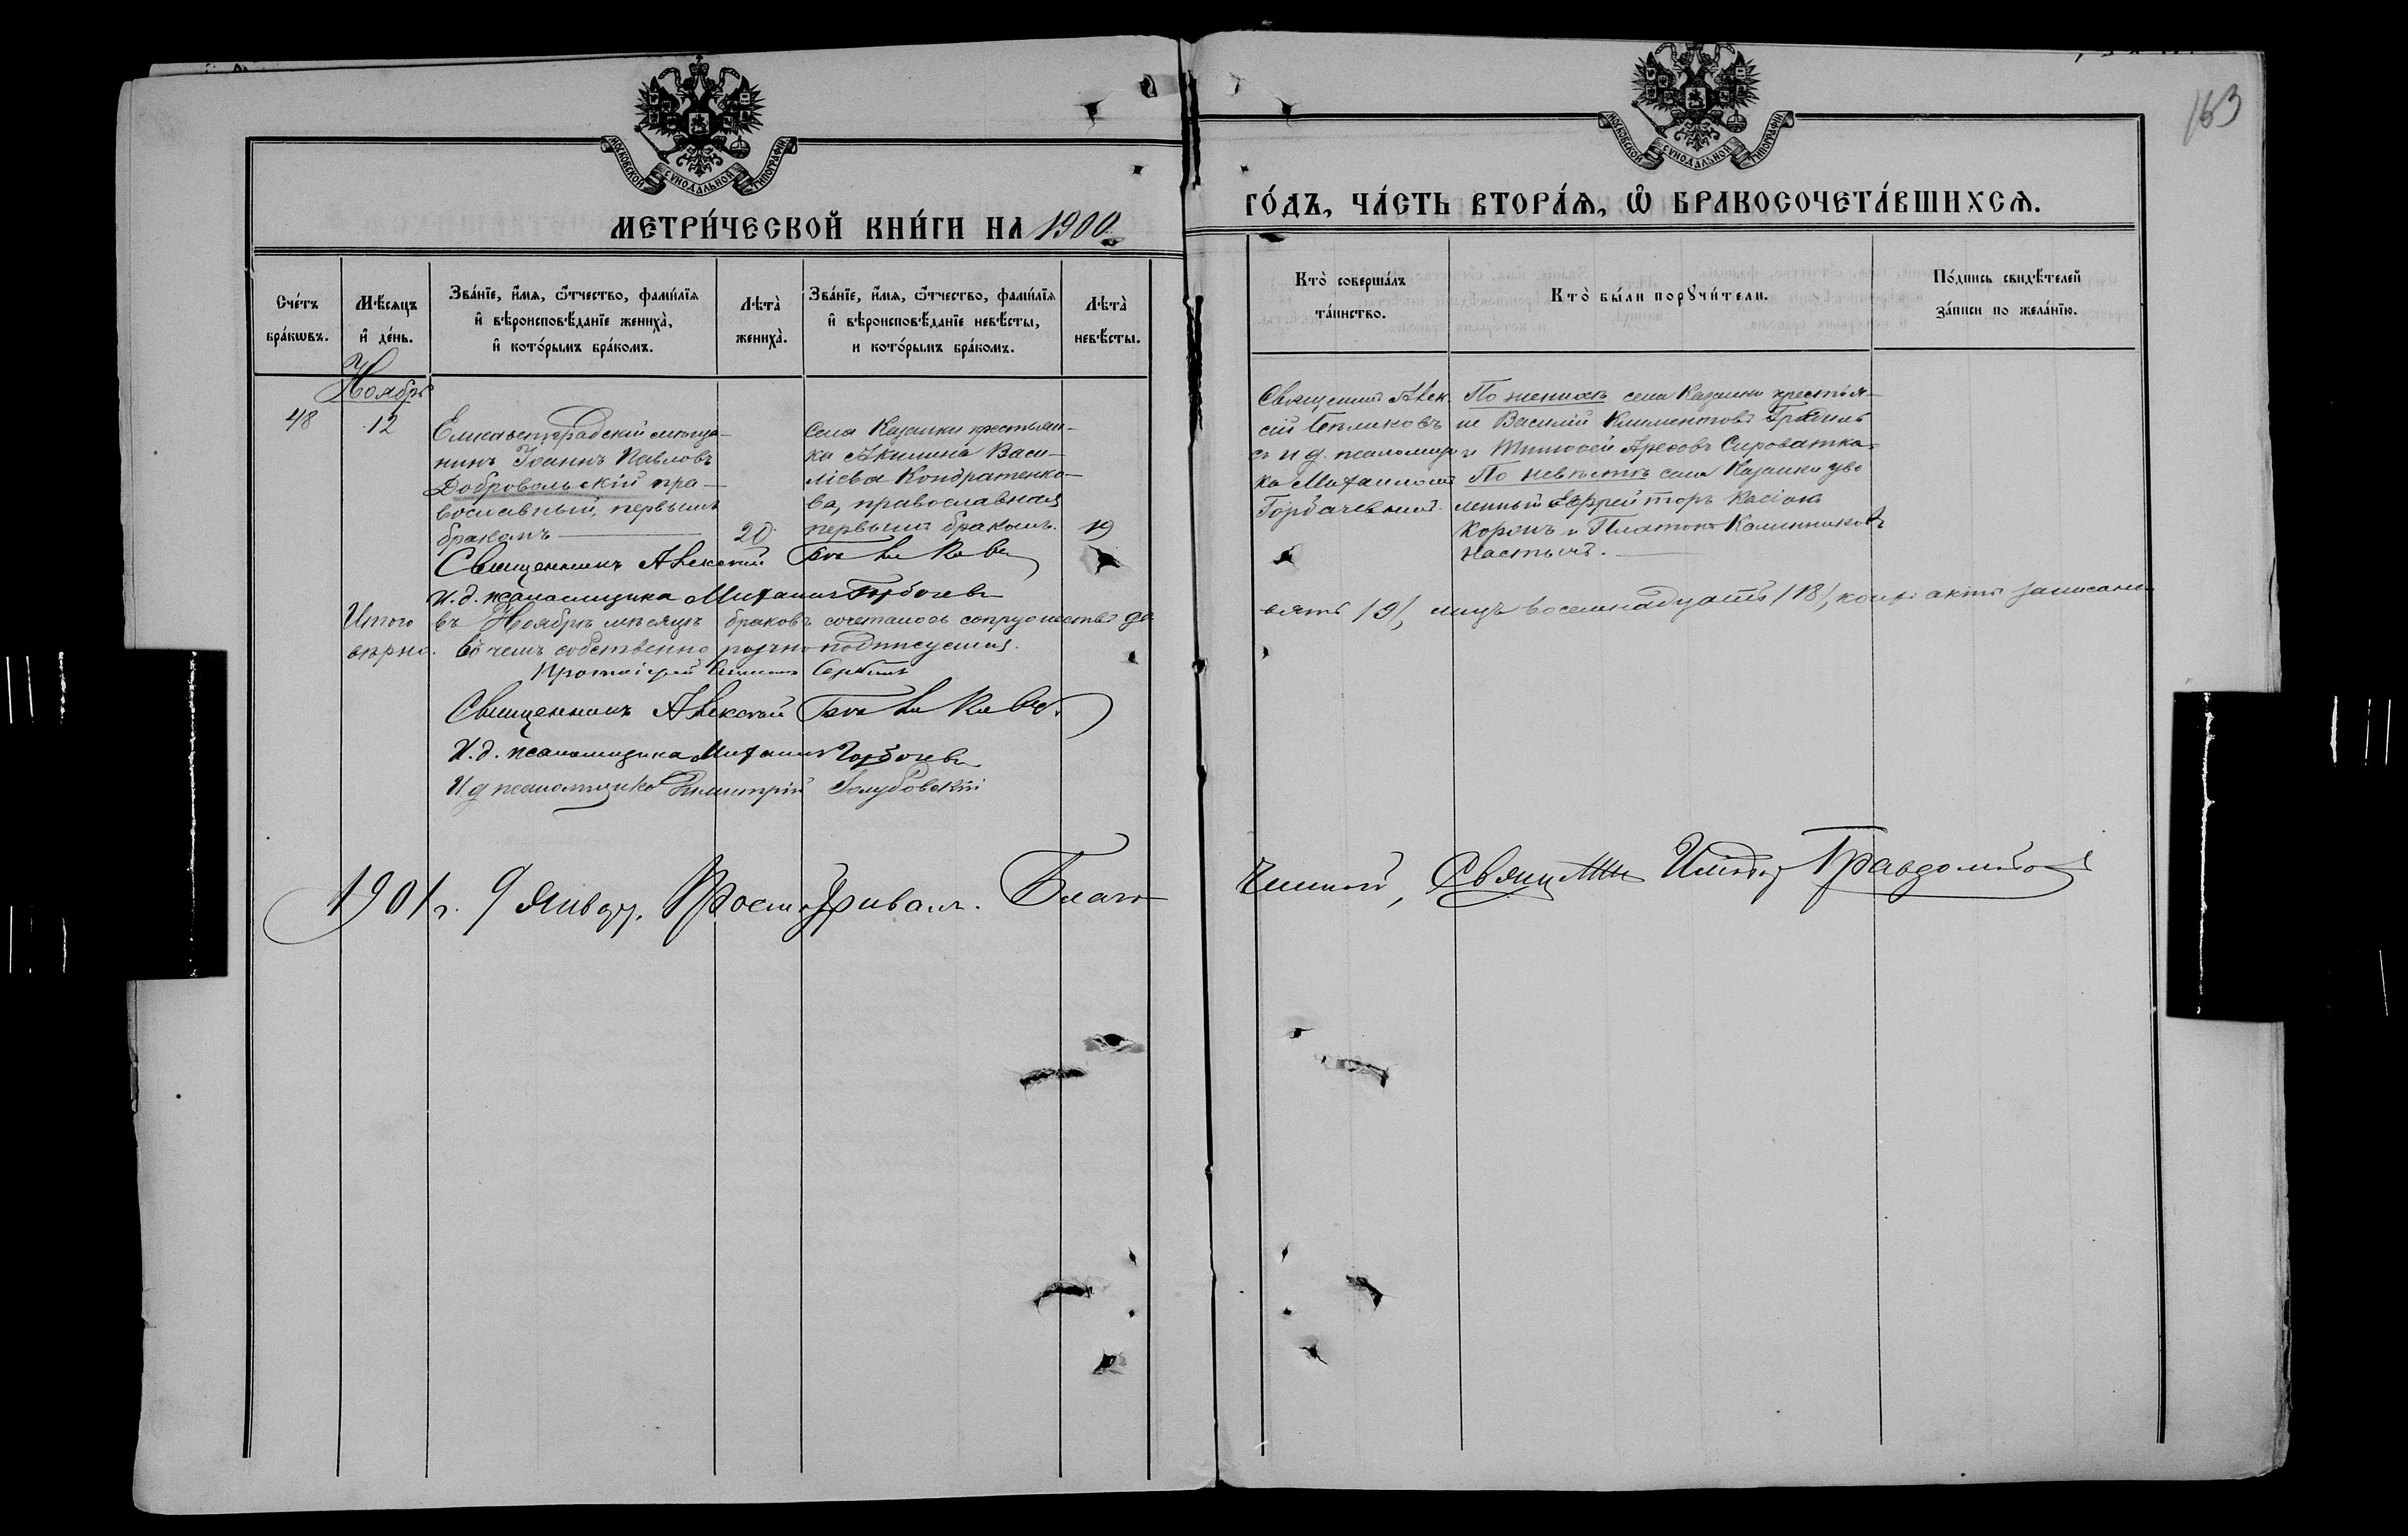 163
МОСКОВСКОЙ СѴНОДАЛЬНОЙ ТИПОГРАФІИ
МОСКОВСКОЙ СѴНОДАЛЬНОЙ ТИПОГРАФІИ
МЕТРИ́ЧЕСКОЙ КНИ́ГИ НА 1900
ГО́ДЪ, ЧА́СТЬ ВТОРА́Я, Ѿ БРАКОСОЧЕТА́ВШИХСЯ.
Сче́тъ
бра́кѡвъ.
Мѣ́сяцъ
и҆ де́нь.
Зва́нїе, и҆́мя, ѻ҆́тчество, фами́лїя
и҆ вѣроисповѣ́данїе жениха̀,
и҆ кото́рымъ бра́комъ.
Лѣта̀
жениха̀.
Зва́нїе, и҆́мя, ѻ҆́тчество, фами́лїя
и҆ вѣроисповѣ́данїе невѣ́сты,
и кото́рымъ бра́комъ.
Лѣта̀
невѣ́сты.
Кто̀ соверша́лъ
та́инство.
Кто̀ бы́ли порꙋчи́тели.
По́дпись свидѣ́телей
за́писи по жела́нїю.
Ноябрь
48
12
Елисаветградскій мѣща-
нинъ Іоаннъ Павловъ
Добровольскій пра-
вославный, первымъ
бракомъ
20
Села Казанки крестьян-
ка Акилина Васи-
ліева Кондратенко-
ва, православная
первымъ бракомъ.
19
Священникъ Алек
сій
съ и д. псаломщи
ка Михаиломъ
Горбачевымъ.
По женихѣ села Казанки крестья-
не Василій Климентовъ
и Тимоѳей Сироватка
По невѣстѣ села Казанки уво
ленный Ефрейторъ Касіанъ
и Платонъ Калинниковъ
Священникъ Алексій
И. д. псаломщика Михаилъ Горбачевъ
Итого въ Ноябрѣ мѣсяцѣ браковъ сочеталось супружествъ де
вять /9/, лицъ восемнадцать /18/, кои акты записаны
вѣрно. Въ чемъ собственноручно подписуемся.
Протоіерей
Священникъ Алексій
И. д. псаломщика Михаилъ Горбачевъ
И д псаломщика Димитрій Голубовскій
1901 г. 9 Январ. Просматривалъ. Благо
чинный, Священ